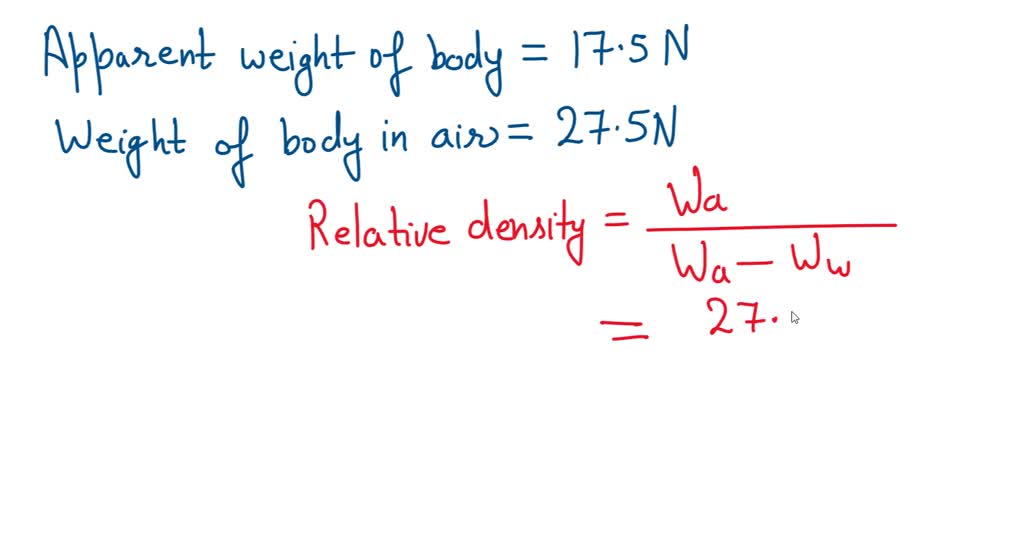 Apparent weight of body = 17.5 N
Weight of body in air = 27.5N
Relative density = Wa
Wa - Ww
= 27.